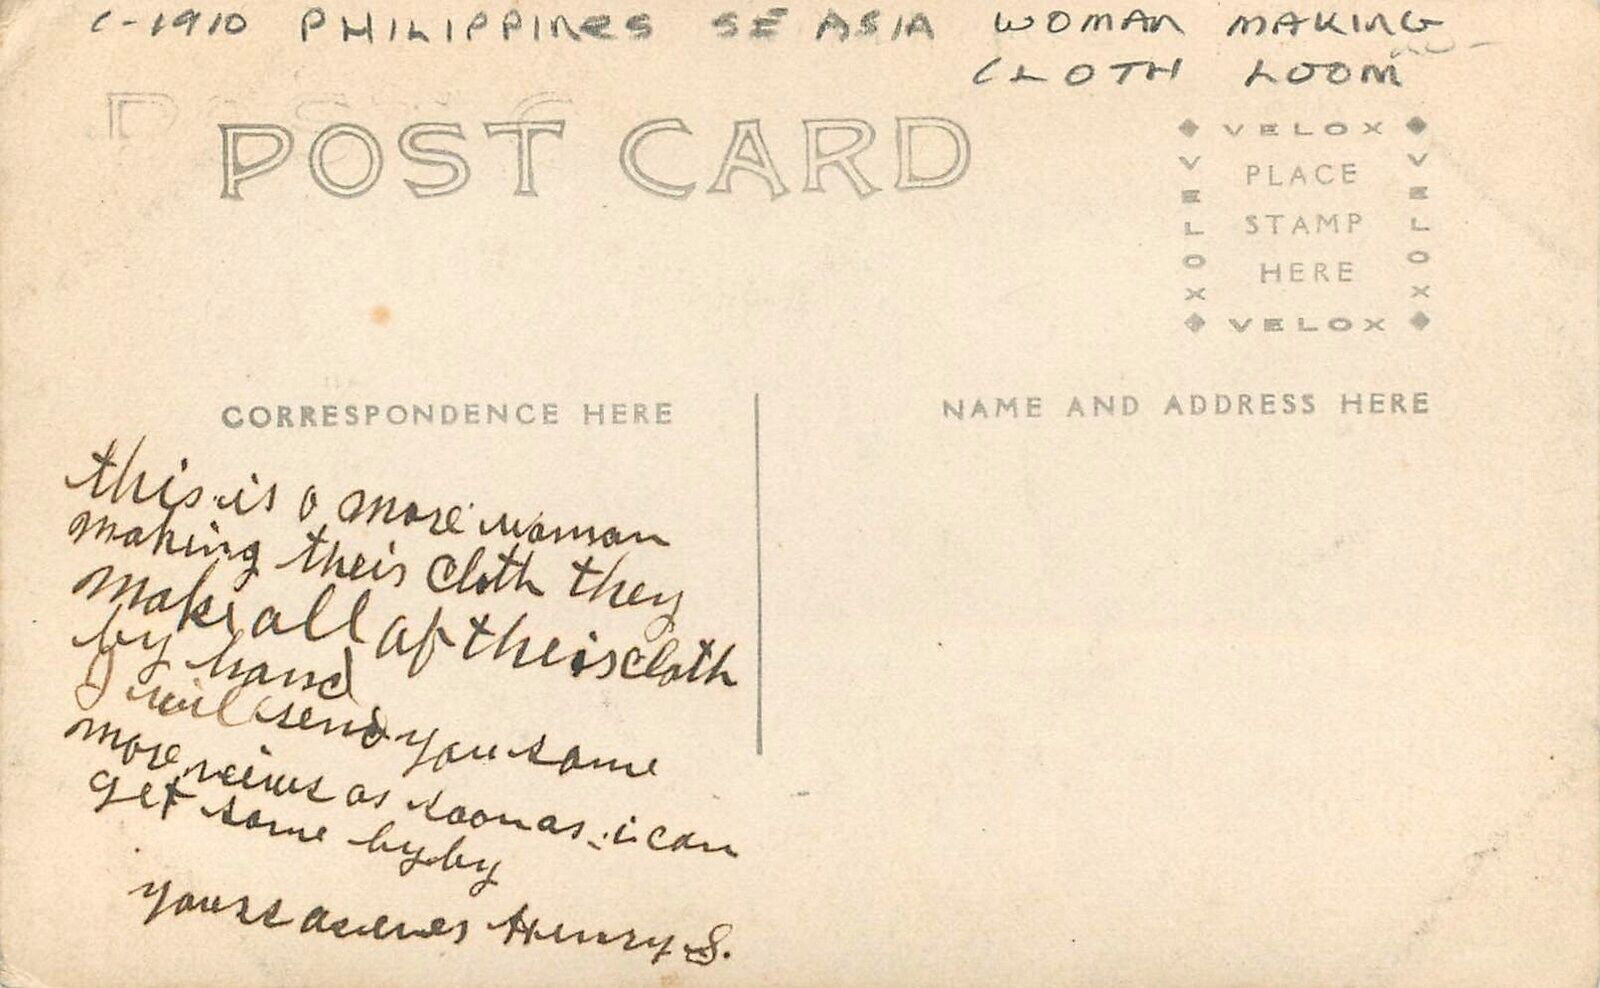 C-1910 PHILIPPINES SE ASIA WOMAN MAKING
CLOTH LOOM
POST CARD
VELOX
VELOX
VELOX
PLACE
STAMP
HERE
VELOX
CORRESPONDENCE HERE
NAME AND ADDRESS HERE
this is a more woman
making their cloth they
make all of their cloth
by hand
I will send you some
more, veiws as soon as i can
get some byby
yours as ever Henry S.